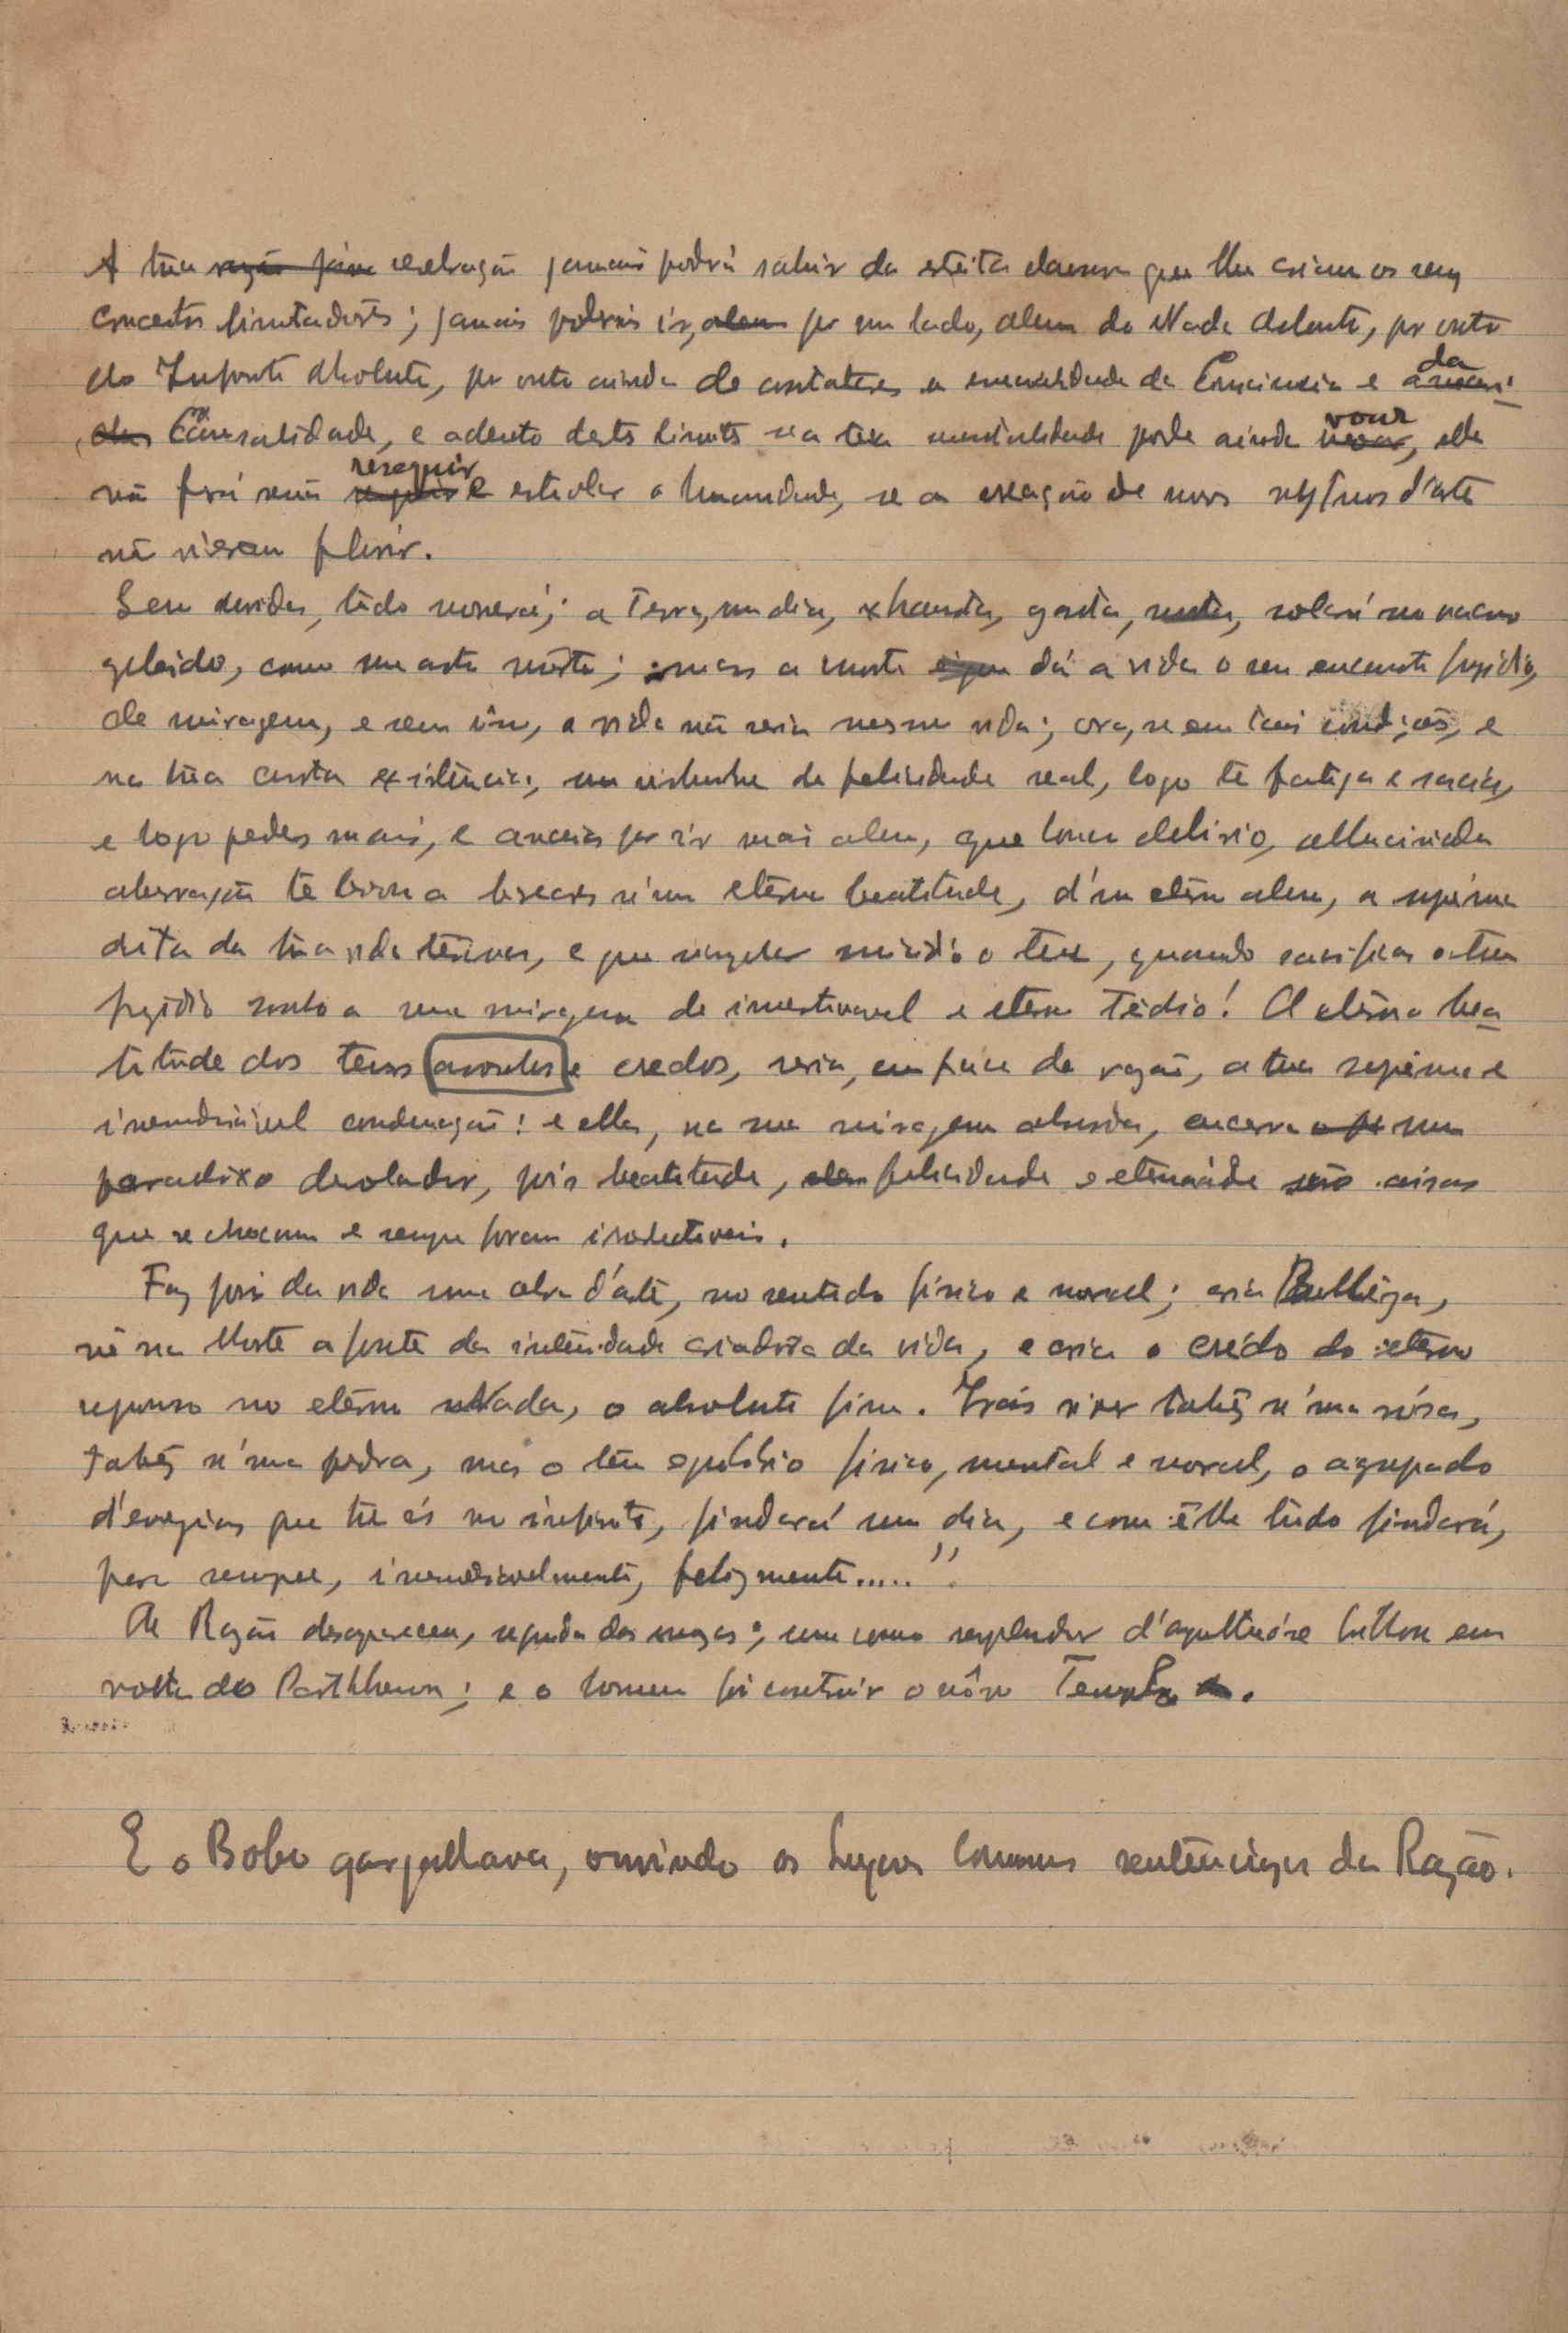 A tua razão pára cerebração jamais podrá sahir da estreita clausura que lhe criam os seus
conceitos limitadores; jamais poderás ir, alem por um lado, alem do Nada absoluto, por outro
do Infinito absoluto, por outro ainda de constatares a universalidade da Consciencia e da
Causalidade, e adentro destes limites se a tua mentalidade pode ainda voar, ella
não fará senão reseguir e estiolar a humanidade, se a creação de novos rythmos d'arte
não vierem florir.
Sem duvida, tudo morrerá; a Terra, um dia, exhausta, gasta, rolará no vacuo
gelido, como um astro morto; mas a morte dá a vida o seu encanto fugidio,
de miragem, e sem um, a vida não seria mesmo vida; ora, se em taes condições, e
na tua curta existencia, um vislumbre de felicidade real, logo te fatiga e sacia,
e logo pedes mais, e anceias por ir mais alem, que louco delirio, allucinada
aberração te leva a buscares n'um eterna beatitude, d'um eterno alem, a suprema
dita da tua vida terrena, e que singular suicidio o teu, quando sacrificas o teu
fugidio sonho a uma miragem de inestimavel e eterno tédio! A eterna bea
titude dos teus avoulos e credos, seria, em face da razão, a tua suprema e
irremediavel condenação: e ella, na sua miragem absurda, encerra um
paradoxo desolador, pois beatitude, felicidade e eternidade são coisas
que se chocam e sempre foram irreductiveis.
Faz pois da vida uma obra d'arte, no sentido fisico e moral; cria Belleza,
vê na Morte a fonte da intensidade criadora da vida, e cria o credo do eterno
repouso no eterno Nada, o absoluto fim. Irás viver talvez n'uma rosa,
talvez n'uma pedra, mas o teu equilibrio fisico, mental e moral, o agrupado
d'energias que tu és no infinito, findará um dia, e com elle tudo findará,
para sempre, irremediavelmente, felizmente....."
A Razão desapareceu, seguida das musas; um como resplendor d'apotheose brilhou em
volta do Parthhenon; e o homem foi construir o nôvo Templo.
E o Bobo gargalhava, ouvindo os Lugares Communs sentênciozos da Razão.